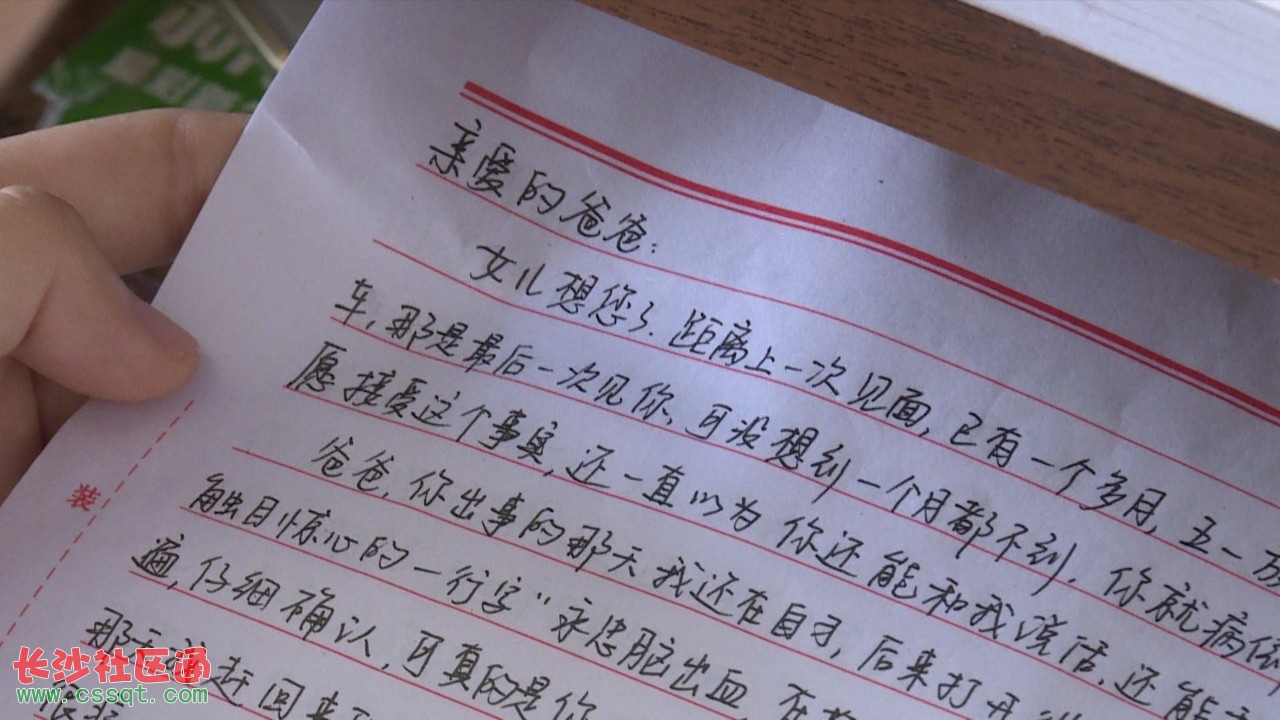 亲爱的爸爸:
女儿想您了.距离上一次见面,已有一个多月,五一放
车,那是最后一次见你,可没想到一个月都不到,你就病倒
愿接受这个事实,还一直以为你还能和我说话,还能
爸爸,你出事的那天我还在自习,后来打开
触目惊心的一行字"永忠脑出血,在
遍,仔细确认,可真的是你
那天 赶回来
装
长沙社区通
www.cssqt.com